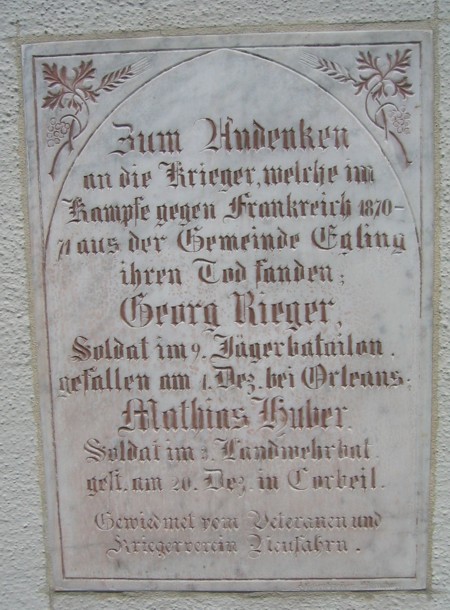 Zum Andenken
an die Krieger, welche im
Kampfe gegen Frankreich 1870-
71 aus der Gemeinde Egling
ihren Tod fanden;
Georg Rieger,
Soldat im 9. Jägerbatailon.
gefallen am 1. Dez. bei Orleans;
Mathias Huber.
Soldat im Landwehrbat.
gest. am 20. Dez. in Corbeil.
Gewiedmet vom Veteranen und
Kriegerverein Neufahrn.